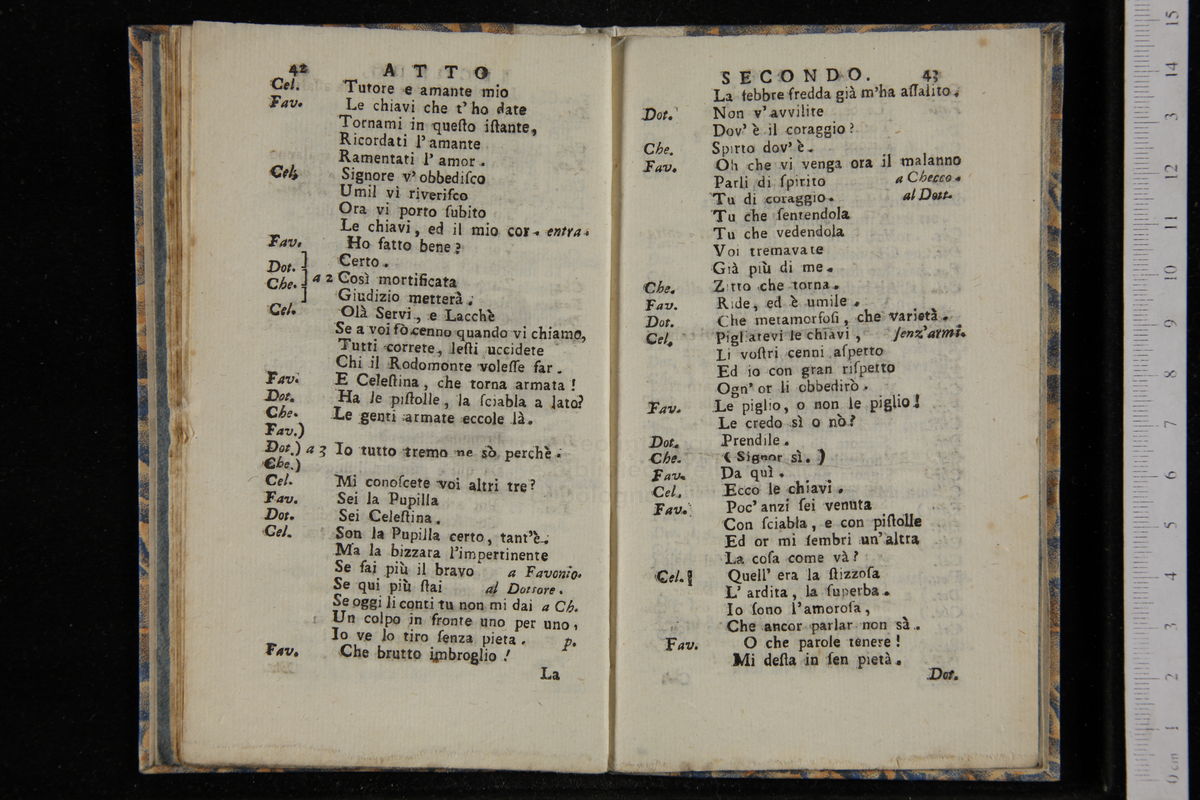 42 ATTO
Cel. Tutore e amante mio
Fav. Le chiavi che t' ho date
Tornami in queſto iſtante,
Ricordati l'amante
Ramentati l' amor.
Cel. Signore v' obbediſco
Umil vi riveriſco
Ora vi porto ſubito
Le chiavi, ed il mio cor. entra.
Fav. Ho fatto bene?
Dot. ] Certo.
Che. ] a 2 Così mortificata
] Giudizio metterà.
Cel. Olà Servi, e Lacchè
Se a voi fò cenno quando vi chiamo,
Tutti correte, leſti uccidete
Chi il Rodomonte voleſſe far.
Fav. E Celeſtina, che torna armata!
Dot. Ha le piſtolle, la ſciabla a lato?
Che. Le genti armate eccole là.
Fav.)
Dot.) a 3 Io tutto tremo ne sò perchè.
Che.)
Cel. Mi conoſcete voi altri tre?
Fav. Sei la Pupilla
Dot. Sei Celeſtina.
Cel. Son la Pupilla certo, tant'è.
Ma la bizzara l'impertinente
Se fai più il bravo a Favonio.
Se qui più ſtai al Dottore.
Se oggi li conti tu non mi dai a Ch.
Un colpo in fronte uno per uno,
Io ve lo tiro ſenza pieta. p.
Fav. Che brutto imbroglio!
La
SECONDO. 43
La febbre fredda già m'ha aſſalito.
Dot. Non v' avvilite
Dov' è il coraggio?
Che. Spirto dov' è.
Fav. Oh che vi venga ora il malanno
Parli di ſpirito a Checco.
Tu di coraggio. al Dott.
Tu che ſentendola
Tu che vedendola
Voi tremavate
Già più di me.
Che. Zitto che torna.
Fav. Ride, ed è umile.
Dot. Che metamorfoſi, che varietà.
Cel. Pigliatevi le chiavi, ſenz'armi.
Li voſtri cenni aſpetto
Ed io con gran riſpetto
Ogn' or li obbedirò.
Fav. Le piglio, o non le piglio!
Le credo sì o nò?
Dot. Prendile.
Che. (Signor sì.)
Fav. Da quì.
Cel. Ecco le chiavi.
Fav. Poc' anzi ſei venuta
Con ſciabla, e con piſtolle
Ed or mi ſembri un' altra
La coſa come và?
Cel. Quell' era la ſtizzoſa
L' ardita, la ſuperba.
Io ſono l'amoroſa,
Che ancor parlar non sà.
Fav. O che parole tenere!
Mi deſta in ſen pietà.
Dot.